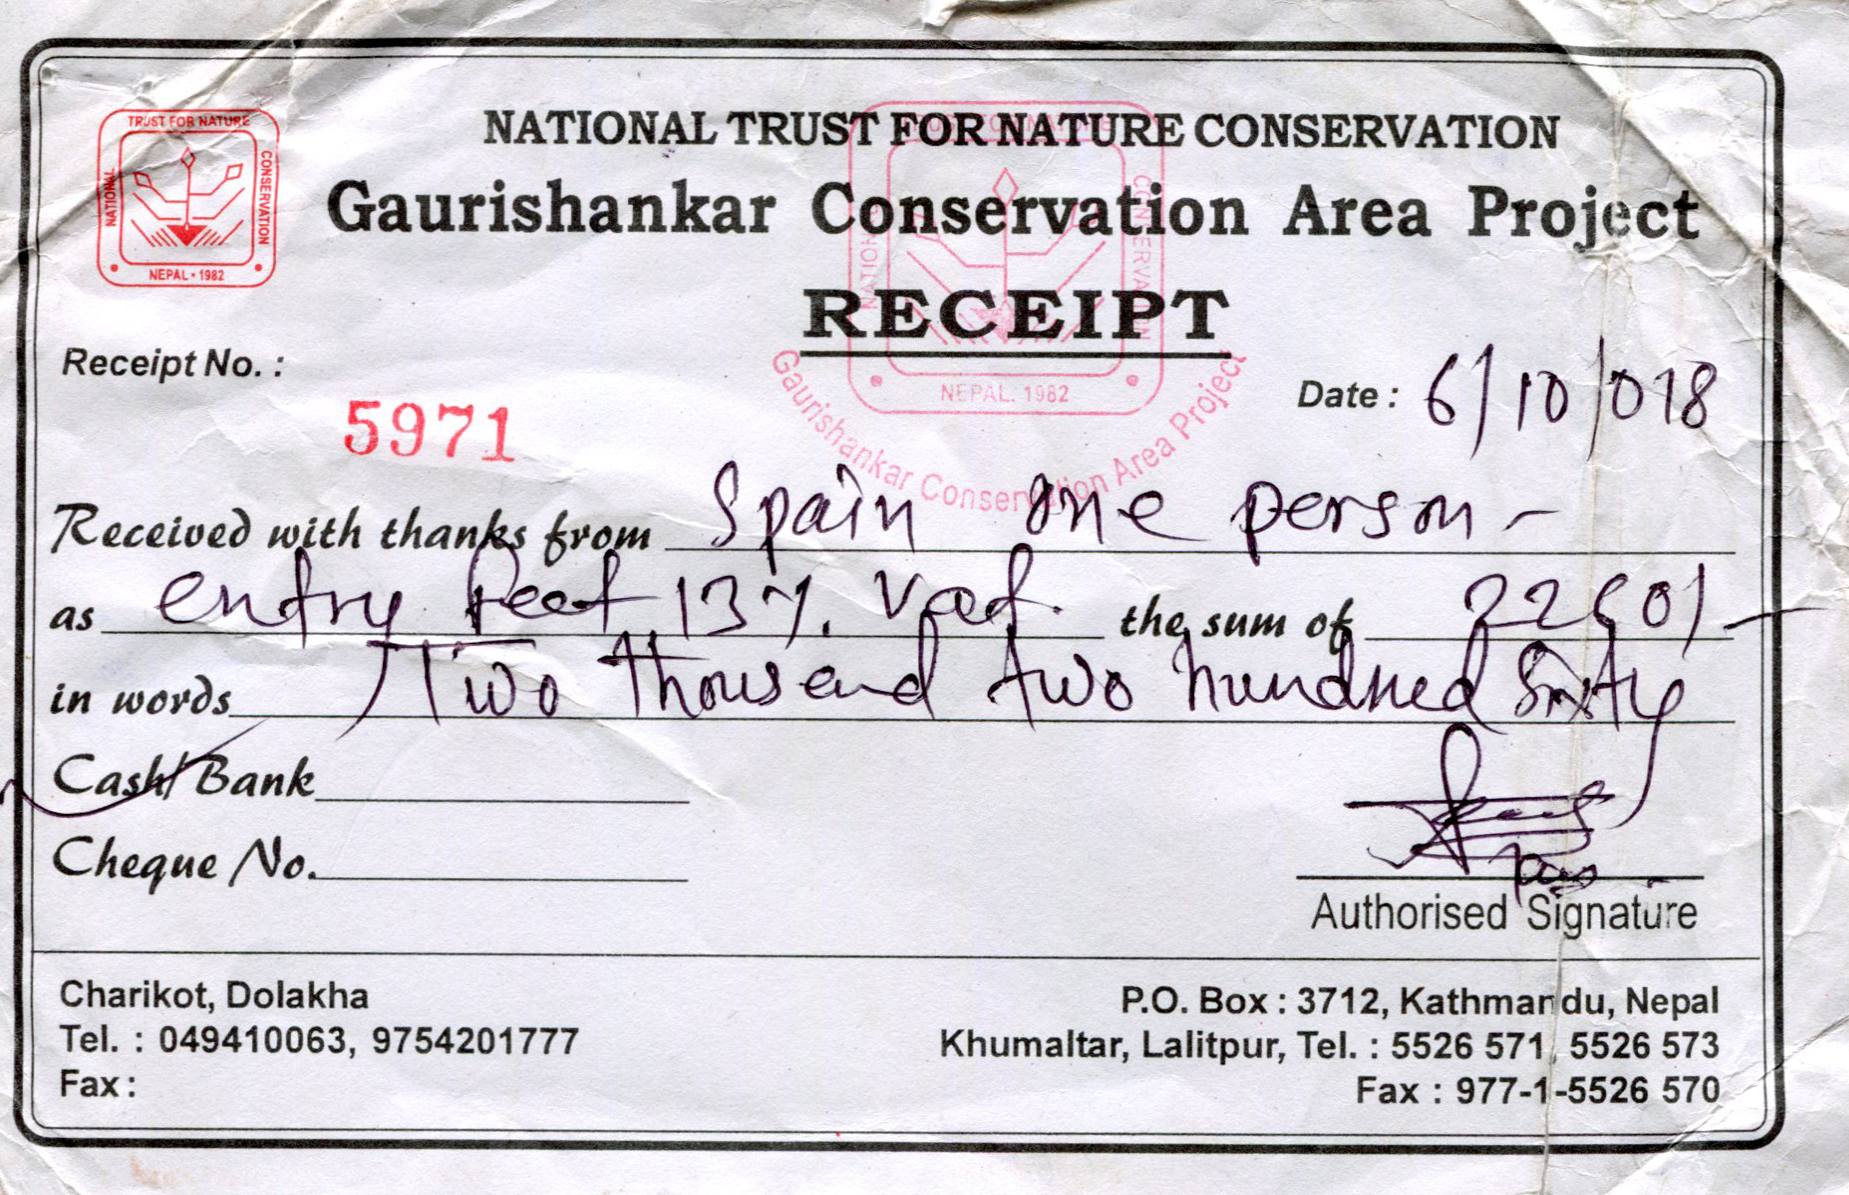 TRUST FOR NATURE
NATIONAL
CONSERVATION
NEPAL • 1982
NATIONAL TRUST FOR NATURE CONSERVATION
Gaurishankar Conservation Area Project
RECEIPT
NATIONAL
CONSERVATION
NEPAL. 1982
Gaurishankar Conservation Area Project
Receipt No. :
5971
Date : 6/10/018
Received with thanks from Spain one person -
as entry feet 13%. Vat. the sum of 2260/-
in words Two thousand two hundred Sixty
Cash/ Bank
Cheque No.
Authorised Signature
Charikot, Dolakha
Tel. : 049410063, 9754201777
Fax :
P.O. Box : 3712, Kathmandu, Nepal
Khumaltar, Lalitpur, Tel. : 5526 571, 5526 573
Fax : 977-1-5526 570